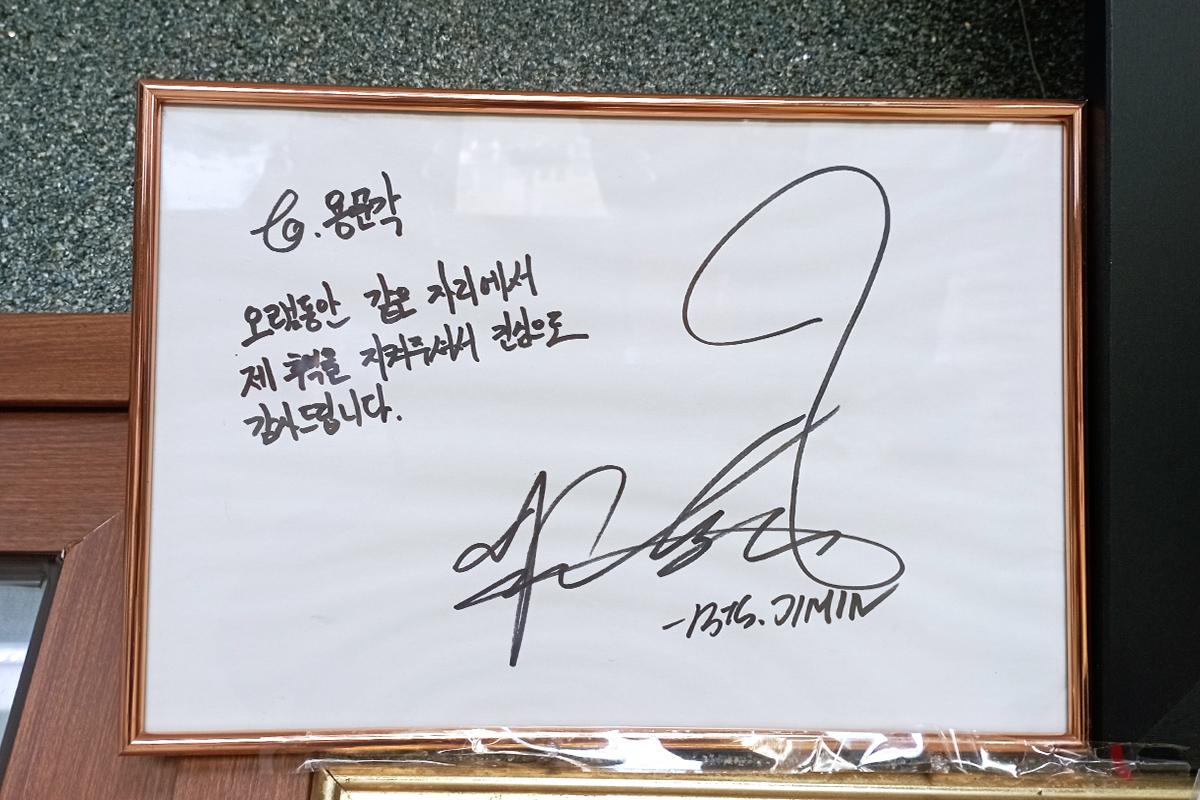 To. 용문각
오랜동안 같은 자리에서
제 추억을 지켜주셔서 진심으로
감사드립니다.
-BTS. JIMIN